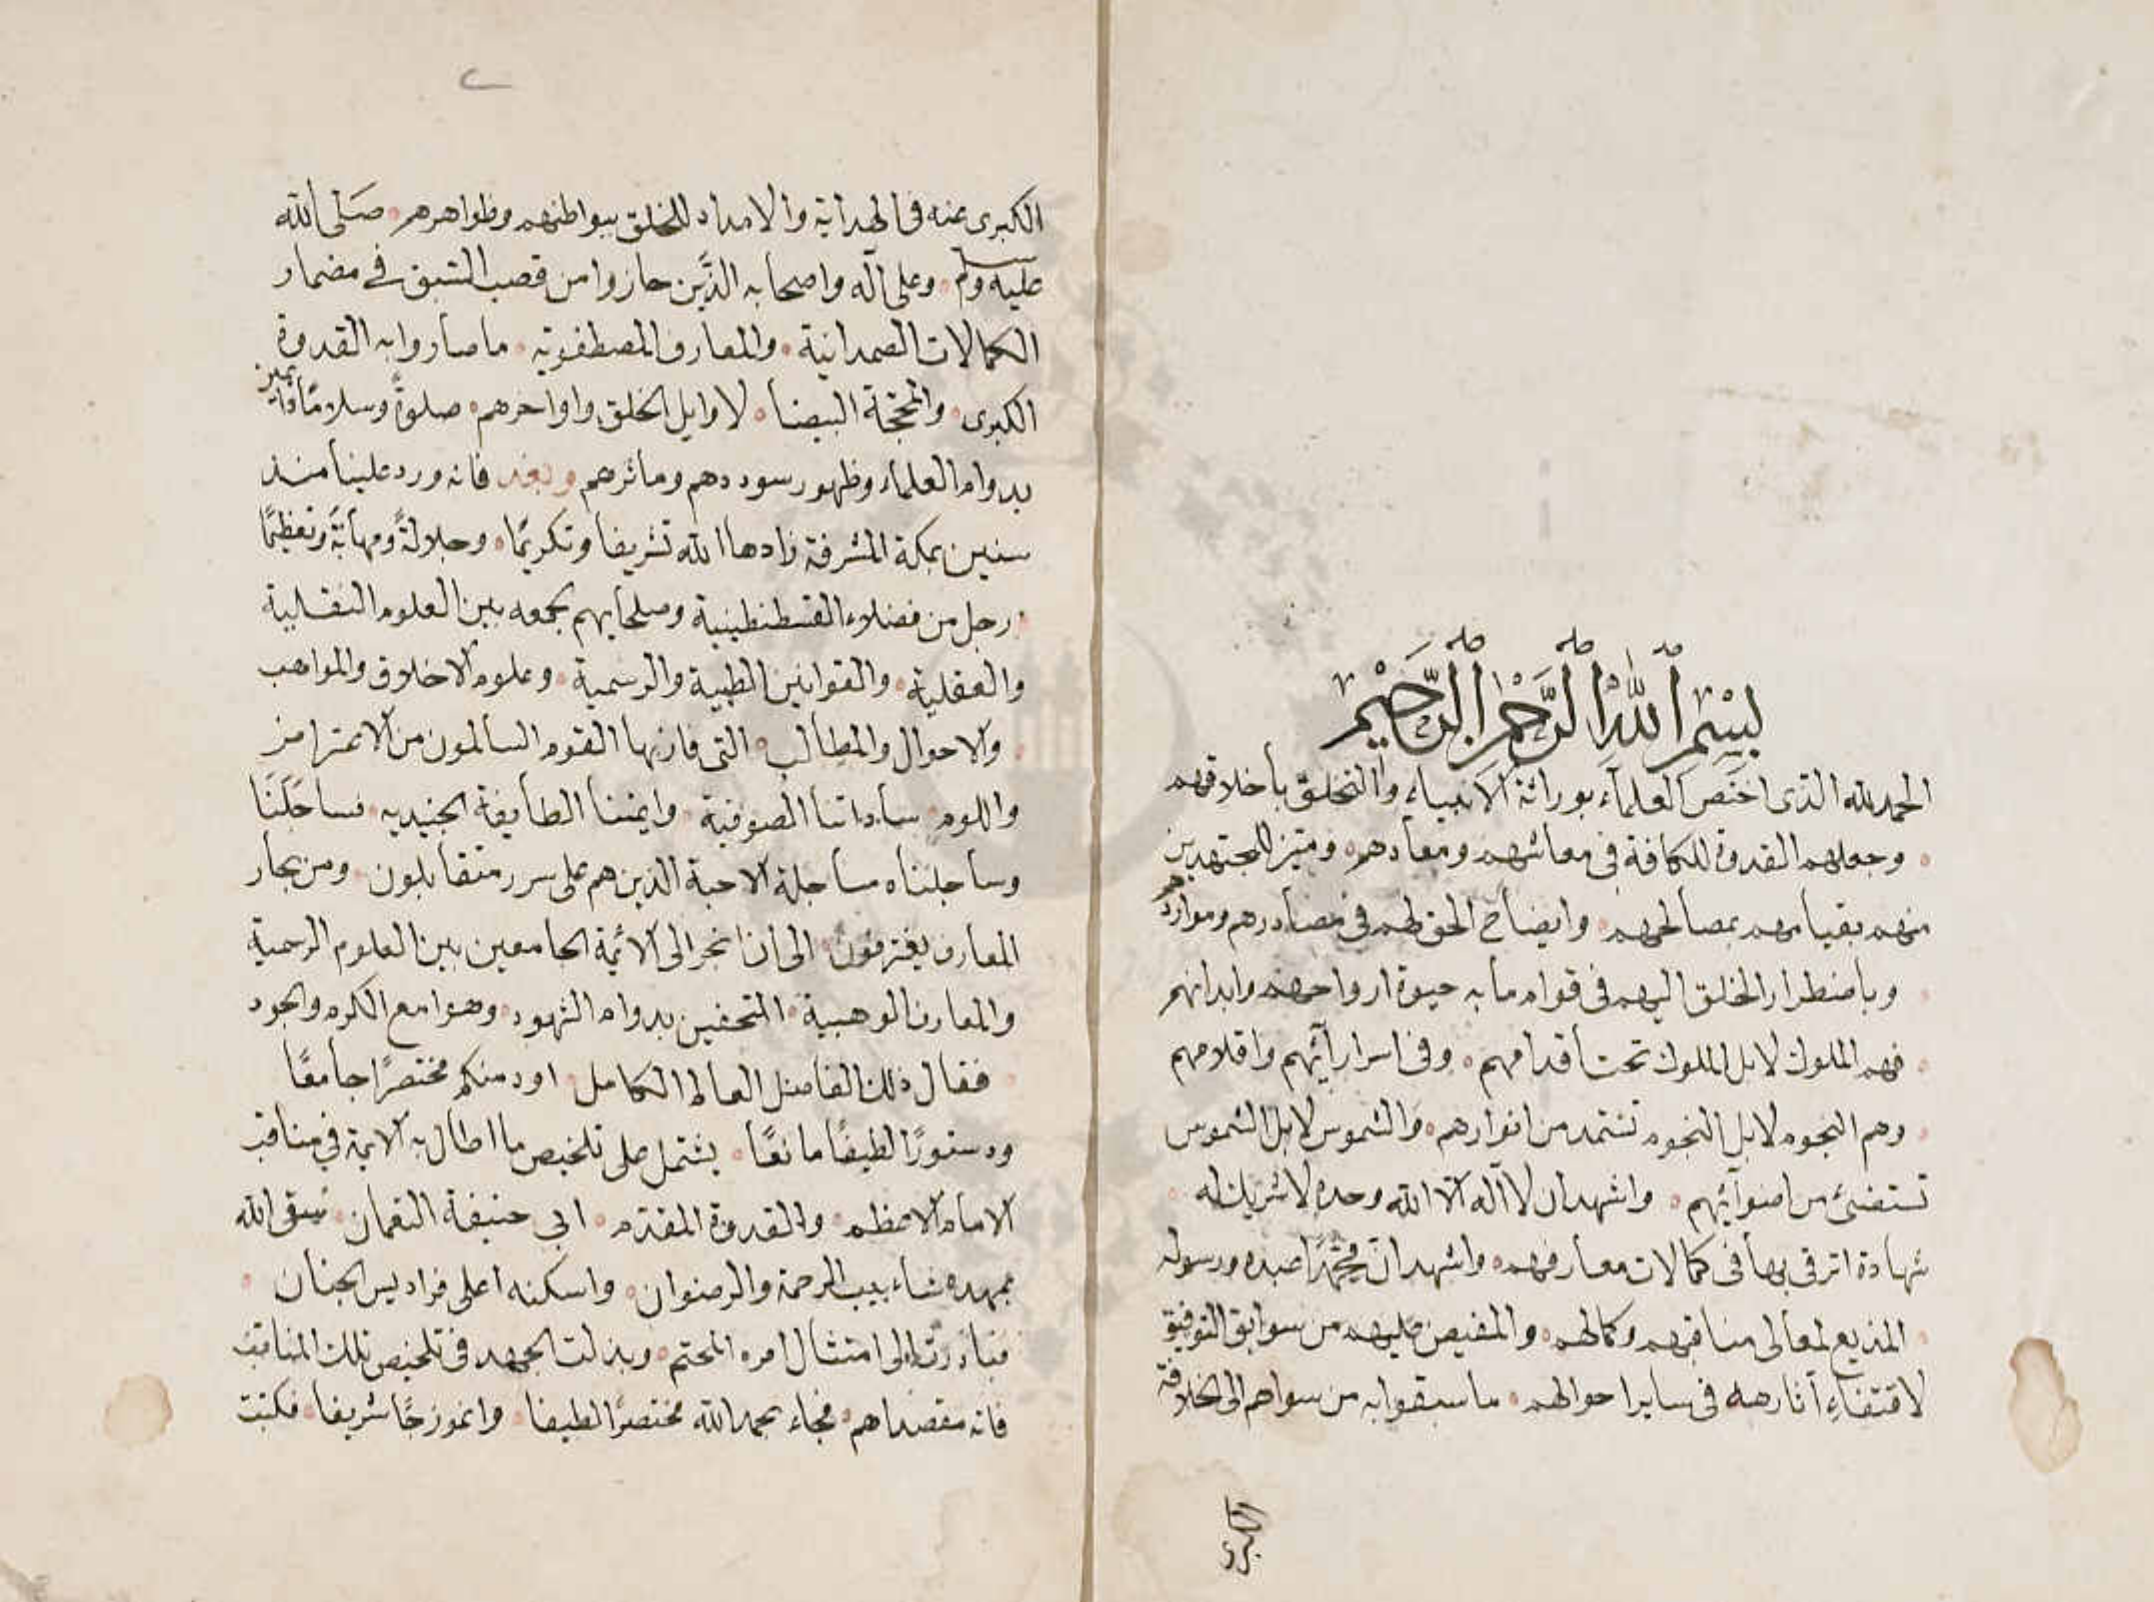 بِسْمِ اللّٰهِ الرَّحْمٰنِ الرَّحِيْمِ
الحمد لله الذى اختص العلماء بوراثة الانبياء والتخلق بأخلاقهم
وجعلهم القدوة للكافة فى معاشهم ومعادهم وميّز المجتهدين
منهم بقيامهم بمصالحهم وايضاح الحق لهم فى مصادرهم ومواردهم
وبأضطرار الخلق اليهم فى قوام مابه حيوة ارواحهم وابدانهم
فهم الملوك لا بل الملوك تحت أقدامهم وفى اسر ارآئهم واقلامهم
وهم النجوم لا بل النجوم تستمد من انوارهم والشموس لا بل الشموس
تستضئ من اضوآئهم واشهد ان لا آله الا الله وحده لا شريك له
شهادة اترقى بها فى كمالات معارفهم واشهد ان محمّدًا عبده ورسوله
المذيع لمعالى مناقبهم وكمالهم والمفيض عليهم من سوابق التوفيق
لاقتفاء آثارهم فى سایر احوالهم ما سبقوا به من سواهم الى الخلافة
الكبرى
٢
الكبرى عنه فى الهداية والامداد للخلق ببواطنهم وظواهرهم صلى الله
عليه وسلم وعلى آله واصحابه الذين حازوا من قصب السّبق فى مضمار
الكمالات الصمدانية والمعارف المصطفوية ما صاروا به القدوة
الكبرى والمحجّة البيضا لاوايل الخلق واواخرهم صلوةً وسلامًا دايمين
بدوام العلماء وظهور سوددهم ومأثرهم وبعد فانه ورد علينا منذ
سنين بمكة المشرفة زادها الله تشريفا وتكريمًا وجلالةً ومهابةً وتعظيمًا
رجل من فضلاء القسطنطينية وصلحايهم بجمعه بين العلوم النقلية
والعقلية والقوانين الطبية والرسمية وعلوم الاخلاق والمواهب
والاحوال والمطالب التى فاز بها القوم السالمون من الاعتراض
واللوم ساداتنا الصوفية وايمتنا الطايفة الجنيديه فساجلنا
وساجلناه مساجلة الاحبة الذين هم على سرر متقابلون ومن بحار
المعارف يغترفون الى ان انجر الى الائمة الجامعين بين العلوم الرسمية
والمعارف الوهبية المتحفين بدوام الشهود وهوامع الكرم والجود
فقال ذلك الفاضل العالم الكامل اود منكم مختصرًا جامعًا
ودستورًا لطيفًا مانعًا يشتمل على تلخيص ما اطال به الايمة فى مناقب
الامام الاعظم والقدوة المقدّم ابى حنيفة النعمان سقى الله
عهده شاءبيب الرحمة والرضوان واسكنه اعلى فراديس الجنان
فبادرت الى امتثال امره المحتم وبذلت الجهد فى تلخيص تلك المناقب
فانه مقصد اهم فجاء بحمد الله مختصرًا لطيفا وانموزجًا شريفا فكتبت